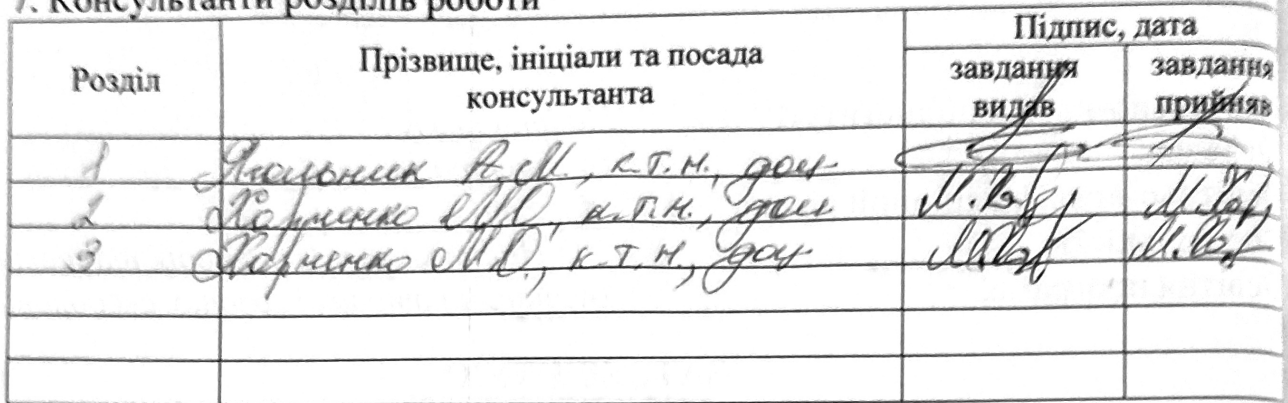 7. Консультанти розділів роботи
Розділ
Прізвище, ініціали та посада
консультанта
Підпис, дата
завдання
видав
завдання
прийняв
1 Ягольник А.М., к.т.н., доц
2 Харченко М.О., к.т.н., доц
3 Харченко М.О., к.т.н., доц